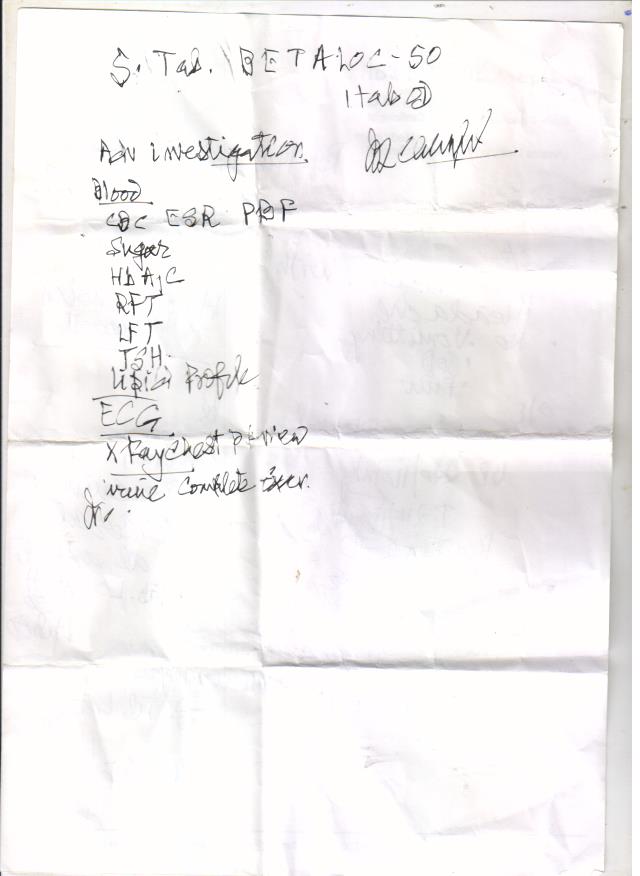 5. Tab. BETALOC-50
1 tab
Adv investigation
Blood
CBC ESR PBF
Sugar
HbA1C
RFT
LFT
TSH
Lipid Profile
ECG
X Ray Chest PA view
urine complete Exam.